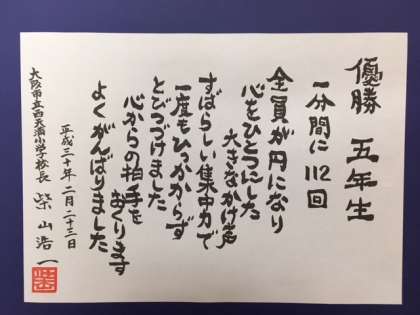 優勝 五年生
一分間に 112回
全員が円になり
心をひとつにした
大きなかけ声
すばらしい集中力で
一度もひっかからず
とびつづけました
心からの拍手を
おくります
よくがんばりました
平成三十年 二月二十三日
大阪市立西天満小学校長 柴山浩一